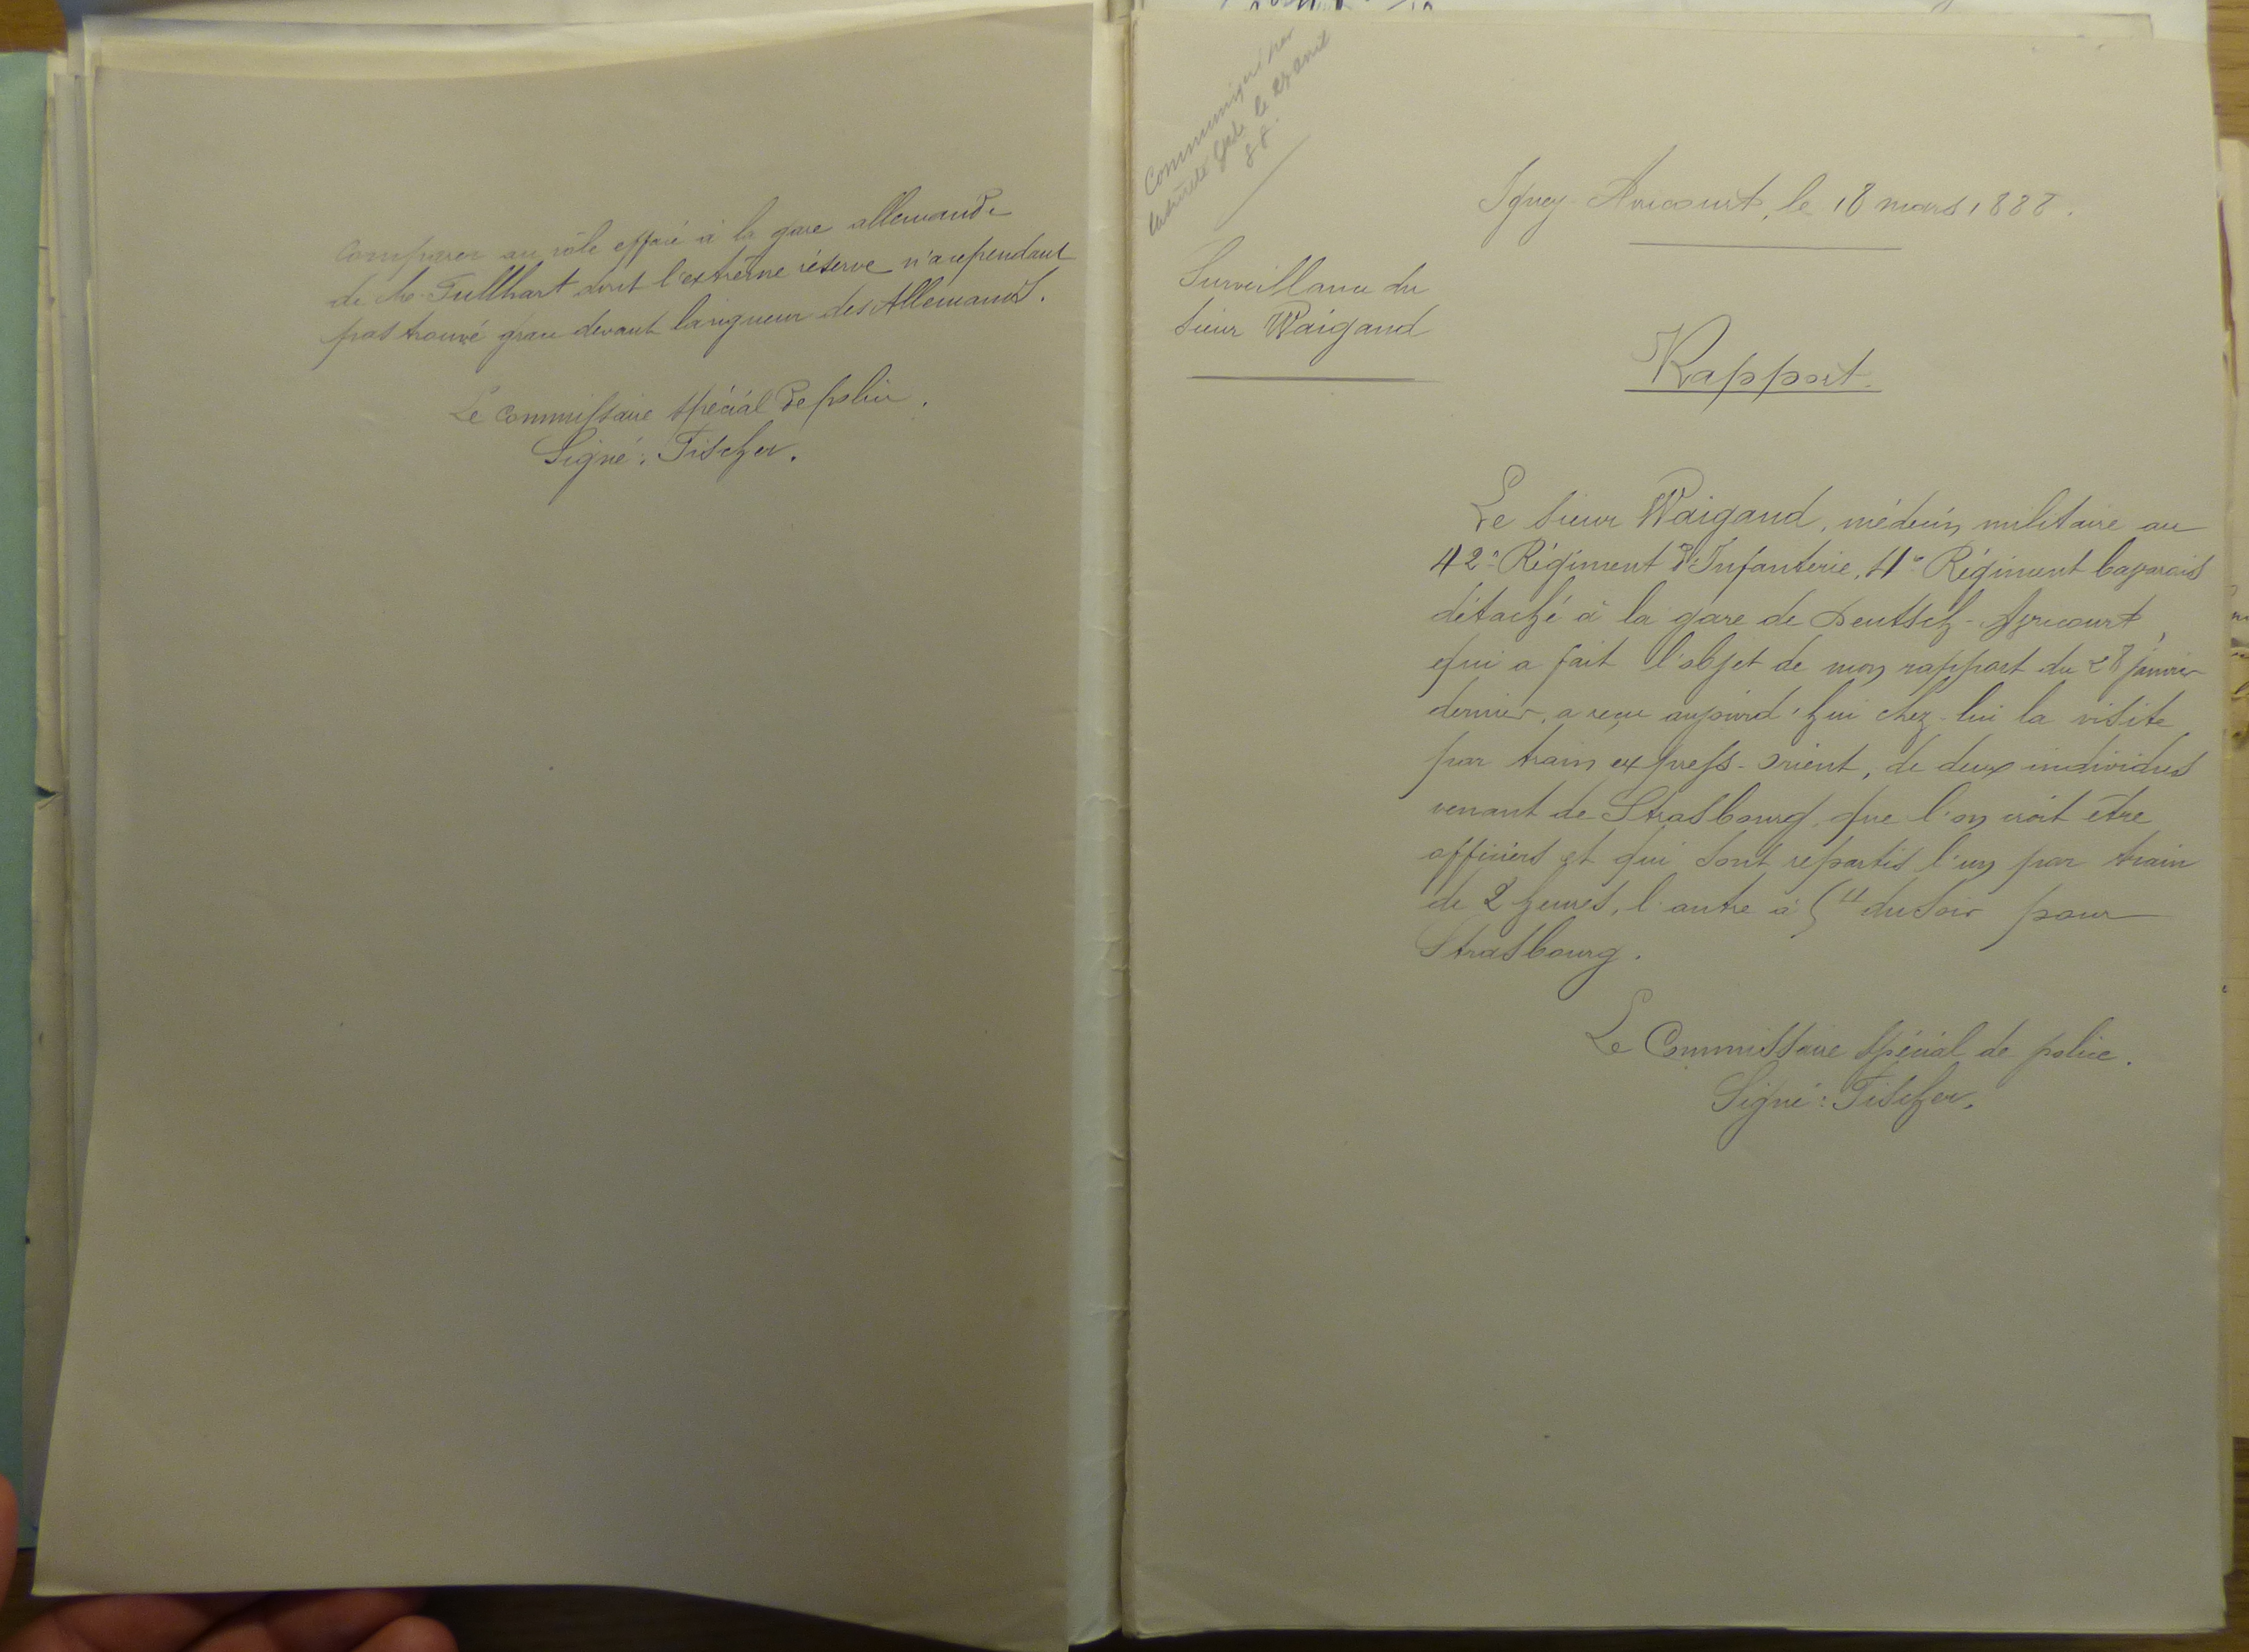 comparer au rôle effacé à la gare allemande
de Mr Tullhart dont l'extrême réserve n'a cependant
pas trouvé grace devant la rigueur des Allemands.
Le Commissaire spécial de police.
Signé: Fischer.
Communiqué par
le 27 avril
88.
Igney-Avricourt, le 18 mars 1888.
Surveillance du
sieur Waigand
Rapport.
Le sieur Waigand, médecin militaire au
42e Régiment d'Infanterie, 4e Régiment bavarois
détaché à la gare de Deutsch-Avricourt,
qui a fait l'objet de mon rapport du 28 janvier
dernier, a reçu aujourd'hui chez-lui la visite
par train express-orient, de deux individus
venant de Strasbourg, que l'on croit être
officiers et qui sont repartis l'un par train
de 2 heures, l'autre à du soir pour
Strasbourg.
Le Commissaire spécial de police.
Signé: Fischer.